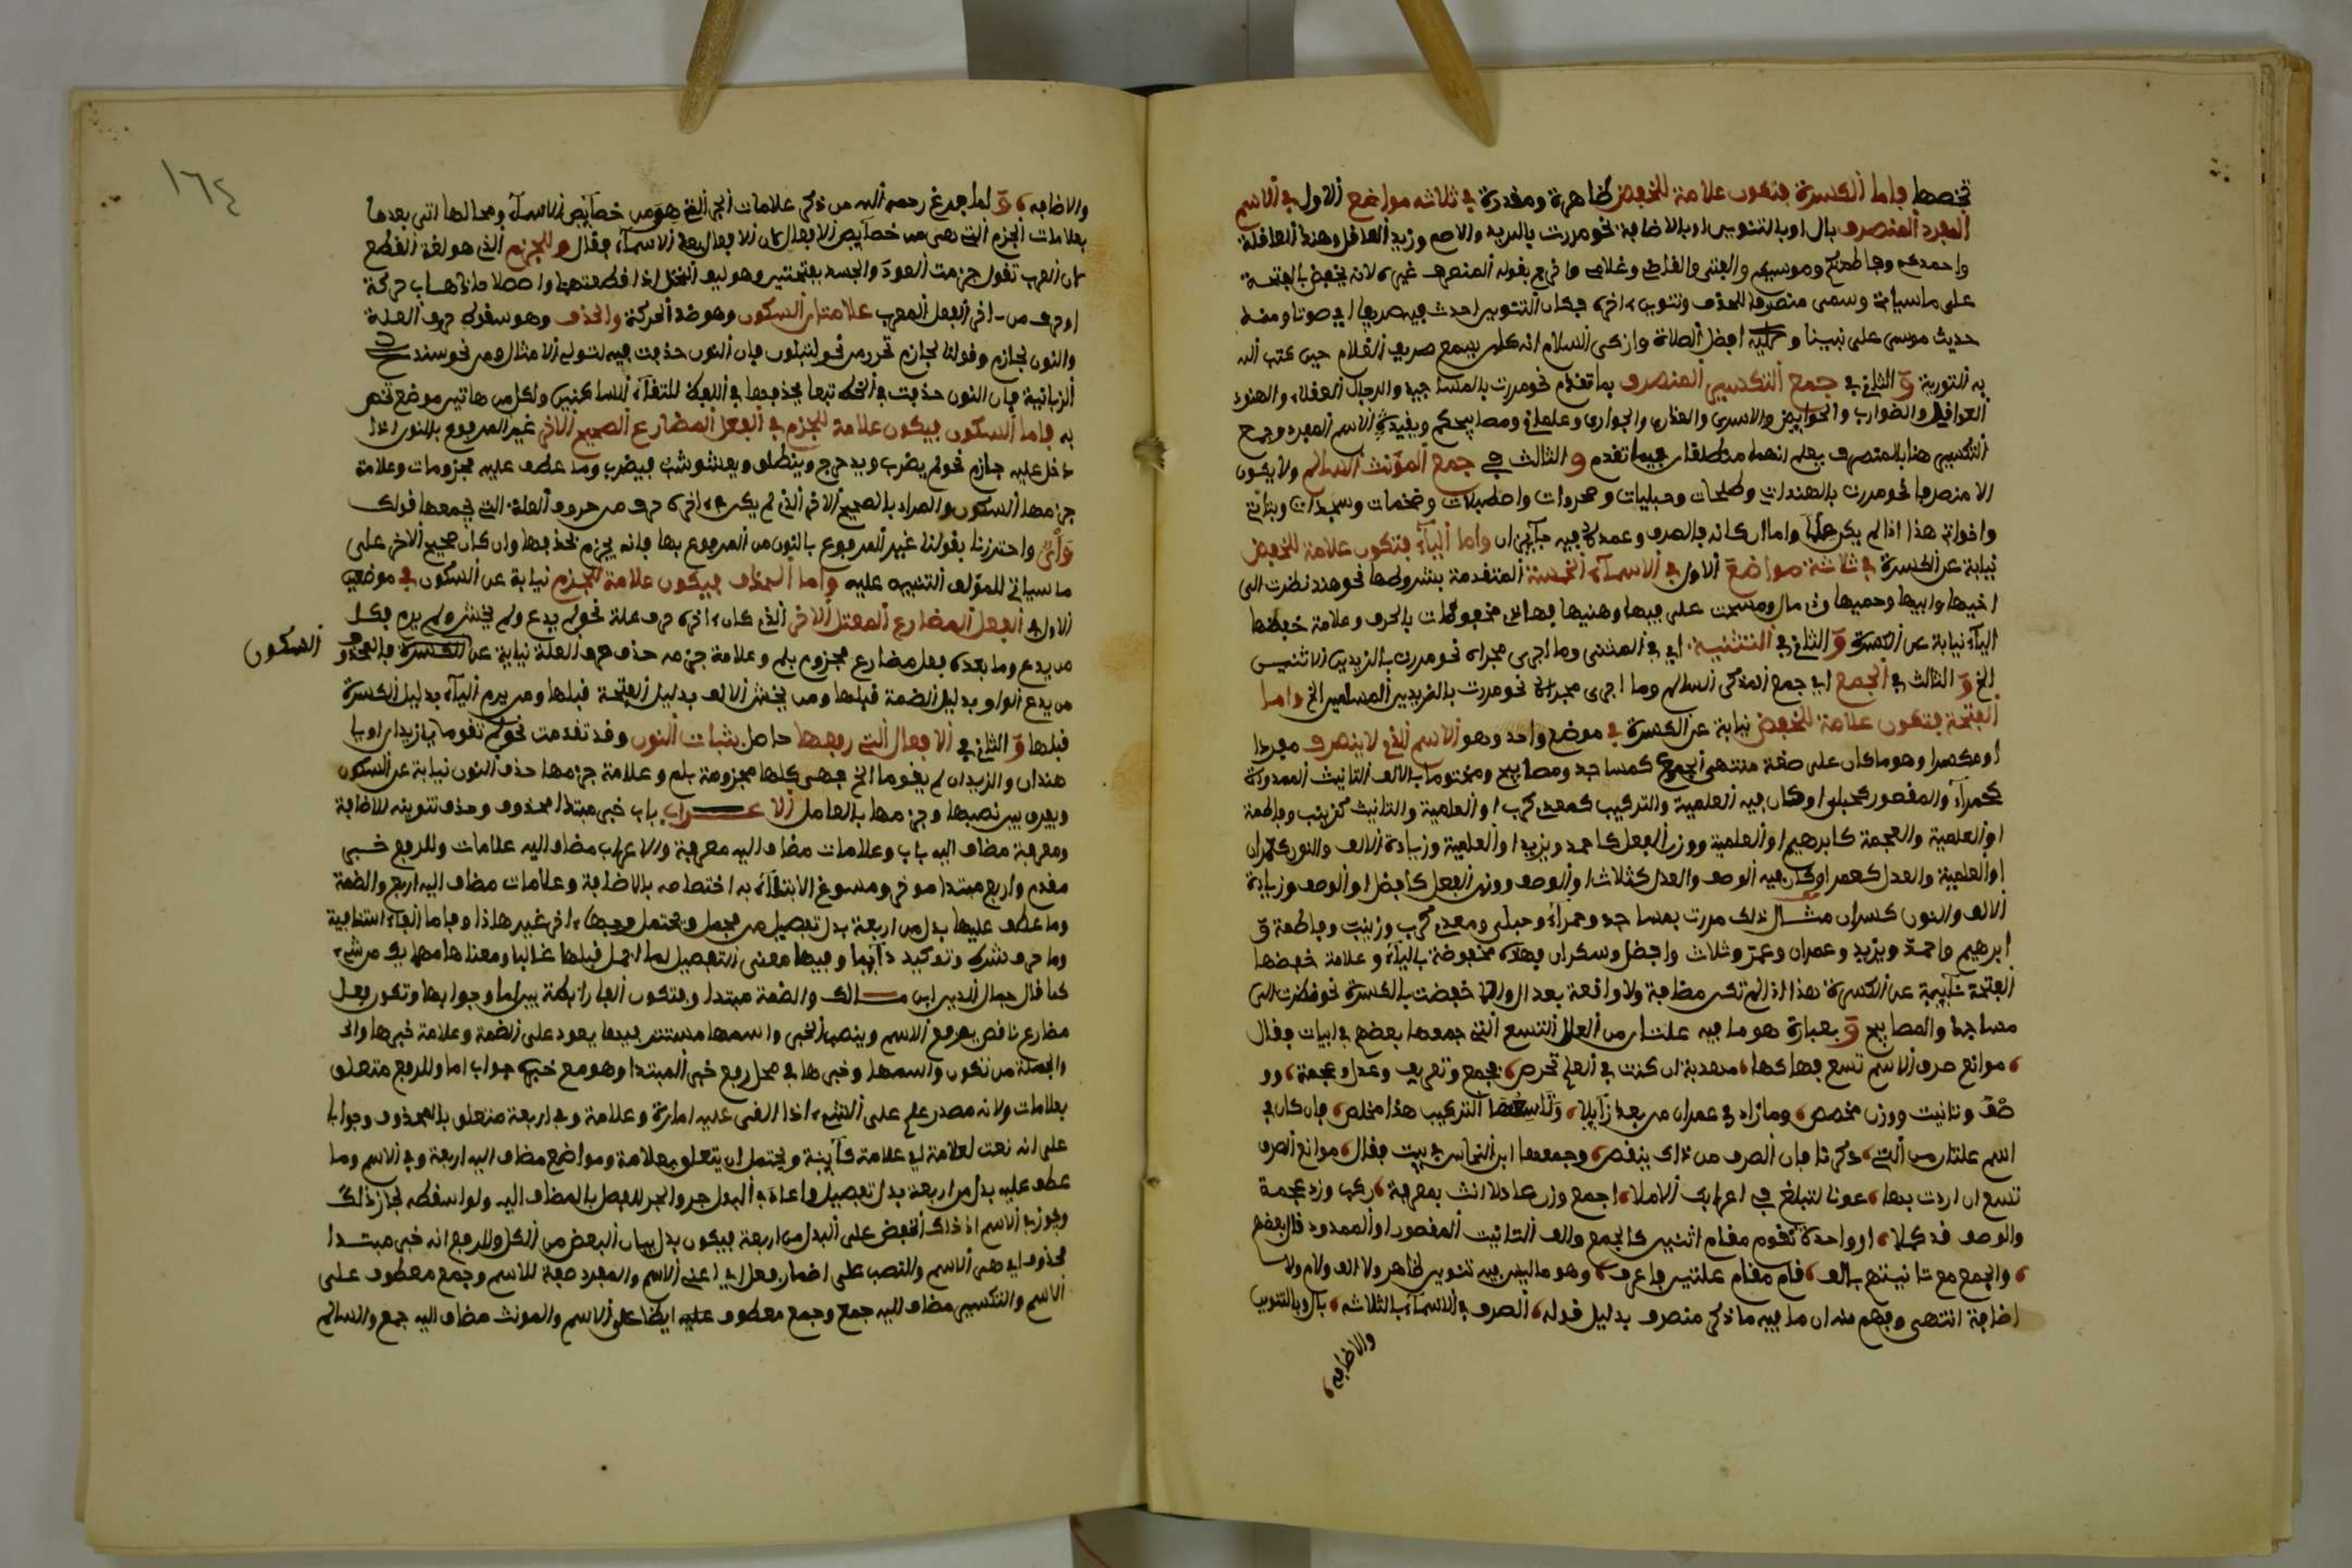 تخصها واما الكسرة فتكون علامة للخفض ظاهرة ومقدرة في ثلاثة مواضع الاول في الاسم
المفرد المنصرف بال او بالتنوين او بالاضافة نحو مررت بالبريد والاصم وزيد العاقل وهند العاقلة
واحمدكم وفاطمتكم وموسيكم والفتى والقاضي وغلامي وخرج بقوله المنصرف غيره لانه يخفض بالفتحة
على ما سياتي وسمى منصرفا للحذف وتنوين اخره فكان التنوين احدث فيه صريفا اي صوتا ومنه
حديث موسى على نبينا وعليه افضل الصلاة وازكى السلام انه كان يسمع صريف القلام حين كتب الله
به التورية و الثاني في جمع التكسير المنصرف بما تقدم نحو مررت بالمساجد والرجال العقلاء والهنود
العواقل والضوارب والحوايض والاسرى والعذارى والجوارى وغلماني ومصابيحكم وبقيد الاسم المفرد وجمع
التكسير هنا بالمنصرف يعلم انهما مطلقان فيما تقدم و الثالث في جمع المؤنث السالم ولا يكون
الا منصرفا نحو مررت بالهندات وطلحات وحبليات وصحروات واصطبلات وضخمات وسجدات وبناتي
واخواتي هذا اذا لم يكن علما واما ان كان فالصرف وعدمه فيه جايزان واما الياء فتكون علامة للخفض
نيابة عن الكسرة في ثلاثة مواضع الاول في الاسماء الخمسة المتقدمة بشروطها نحو هند نظرت الى
اخيها وابيها وحميها وذي مال ومسحت على فيها وهنيها فهاته مخفوضات بالحرف وعلامة خفضها
الياء نيابة عن الكسرة و الثاني في التثنية اي في المثنى وما اجرى مجراه نحو مررت بالزيدين الاثنين
الخ و الثالث في الجمع اي جمع المذكر السالم وما اجرى مجراه نحو مررت بالزيدين المسلمين الخ واما
الفتحة فتكون علامة للخفض نيابة عن الكسرة في موضع واحد وهو الاسم الذي لا ينصرف مفردا
او مكسرا وهو ما كان على صيغة منتهى الجموع كمساجد ومصابيح ومختوما بالف التانيث الممدودة
كحمراء والمقصور كحبلى او كان فيه العلمية والتركيب كمعدي كرب او العلمية والتانيث كزينب وفاطمة
او العلمية والعجمة كابرهيم او العلمية ووزن الفعل كاحمد ويزيد او العلمية وزيادة الالف والنون كعمران
او العلمية والعدل كعمر او كان فيه الوصف والعدل كثلاث او الوصف ووزن الفعل كافضل او الوصف وزيادة
الالف والنون كسكران مثال ذلك مررت بمساجد وحمراء وحبلى ومعدي كرب وزينب وفاطمة و
ابرهيم واحمد ويزيد وعمران وعمر وثلاث وافضل وسكران فهذه مخفوضة بالباء وعلامة خفضها
الفتحة نايبة عن الكسرة هذا اذا لم تكن مضافة ولا واقعة بعد ال والا خفضت بالكسرة نحو نظرت الى
مساجدنا والمصابيح و بعبارة هو ما فيه علتان من العلل التسع التي جمعها بعضهم في ابيات فقال
موانع صرف الاسم تسع فهاكها مهذبة ان كنت في العلم تحرص فجمع وتعريف وعدل وعجمة وو
صف وتانيث ووزن مخصص وما زاد في عمران من بعد زايلا وتاسعها التركيب هذا مخلص فان كان في
اسم علتان من التي ذكرنا فان الصرف من ذاك ينقص وجمعها ابن النحاس في بيت فقال موانع الصرف
تسع ان اردت بها عونا لتبلغ في اعرابك الاملا اجمع وزن عادلا انث بمعرفة ركب وزد عجمة
والوصف قد كملا او واحدة تقوم مقام اثنين كالجمع والف التانيث المقصور او الممدود قال بعضهم
والجمع مع تانيثهم بالف قام مقام علتين فاعرف وهو ما ليس فيه تنوين ظاهر ولا الف ولام ولا
اضافة انتهى وفهم منه ان ما فيه ما ذكر منصرف بدليل قوله الصرف في الاسماء بالثلاثه بال وبالتنوين
والاضافه
١٦٤
والاضافه و لما فرغ رحمه الله من ذكر علامات الجر الذي هو من خصايص الاسماء ومحالها اتى بعدها
بعلامات الجزم التي هي من خصايص الافعال كان الافعال بعد الاسماء فقال وللجزم الذي هو لغة القطع
كان العرب تقول جزمت العود والجسد بفتحتين وهو ليف النخل اذا قطعتهما واصطلاحا ذهاب حركة
او حرف من اخر الفعل المعرب علامتان السكون وهو ضد الحركة والحذف وهو سقوط حرف العلة
والنون لجازم وقولنا لجازم تحرز من نحو لتبلون فان النون حذفت فيه لتوالي الامثال ومن نحو سندع
الزبانية فان النون حذفت في الخط تبعا لحذفها في اللفظ لالتقاء الساكنين ولكل من هاتين موضع تختص
به فاما السكون فيكون علامة للجزم في الفعل المضارع الصحيح الاخر غير المرفوع بالنون اذا
دخل عليه جازم نحو لم يضرب ويدحرج وينطلق ويعشوشب فيضرب وما عطف عليه مجزومات وعلامة
جزمها السكون والمراد بالصحيح الاخر الذي لم يكن في اخره حرف من حروف العلة التي يجمعها قولك
واي واحترزنا بقولنا غير المرفوع بالنون من المرفوع بها فانه يجزم بحذفها وان كان صحيح الاخر على
ما سياتي للمؤلف التنبيه عليه واما الحذف فيكون علامة للجزم نيابة عن السكون في موضعين
الاول في الفعل المضارع المعتل الاخر الذي كان اخره حرف علة نحو لم يدع ولم يخش ولم يرم فكل
من يدع وما بعده فعل مضارع مجزوم بلم وعلامة جزمه حذف حرف العلة نيابة عن الكسرة فالمحذوف
السكون
من يدع الواو بدليل الضمة قبلها ومن يخش الالف بدليل الفتحة قبلها ومن يرم الياء بدليل الكسرة
قبلها و الثاني في الافعال التي رفعها حاصل بثبات النون وقد تقدمت نحو لم تقوما يا زيدان او يا
هندان والزيدان لم يقوما الخ فهي كلها مجزومة بلم وعلامة جزمها حذف النون نيابة عن السكون
ويفرق بين نصبها وجزمها بالعامل الاعراب باب خبر مبتدا محذوف وحذف تنوينه للاضافة
ومعرفة مضاف اليه باب وعلامات مضاف اليه معرفة والاعراب مضاف اليه علامات وللرفع خبر
مقدم واربع مبتدا موخر ومسوغ الابتداء به اختصاصه بالاضافة وعلامات مضاف اليه اربع والضمة
وما عطف عليها بدل من اربعة بدل تفصيل من مجمل ويحتمل وجها اخر غير هاذا وفاما الفاء استئنافية
وما حرف شرط وتوكيد دايما وفيها معنى التفصيل لما اجمل قبلها غالبا ومعناها مهما يك من شيء
كما قال جمال الدين ابن مــالك والضمة مبتدا وفتكون الفا رابطة بين اما وجوابها وتكون فعل
مضارع ناقص يرفع الاسم وينصب الخبر واسمها مستتر فيها يعود على الضمة وعلامة خبرها وال
والجملة من تكون واسمها وخبرها في محل رفع خبر المبتدا وهو مع خبره جواب اما وللرفع متعلق
بعلامات ولانه مصدر علم على الشيء اذا القى عليه امارة وعلامة وفي اربعة متعلق بالمحذوف وجوابا
على انه نعت لعلامة اي علامة كاينة ويحتمل ان يتعلق بعلامة ومواضع مضاف اليه اربعة وفي الاسم وما
عطف عليه بدل من اربعة بدل تفصيل واعادة في البدل حرف الجر للفصل بالمضاف اليه ولو اسقطه لجاز ذلك
ويجوز في الاسم اذ ذاك الخفض على البدل من اربعة فيكون بدل بيان البعض من الكل والرفع انه خبر مبتدا
محذوف اي هي الاسم والنصب على اضمار فعل اي اعني الاسم والمفرد صفة للاسم وجمع معطوف على
الاسم والتكسير مضاف اليه جمع وجمع معطوف عليه ايضا على الاسم والمونث مضاف اليه جمع والسالم